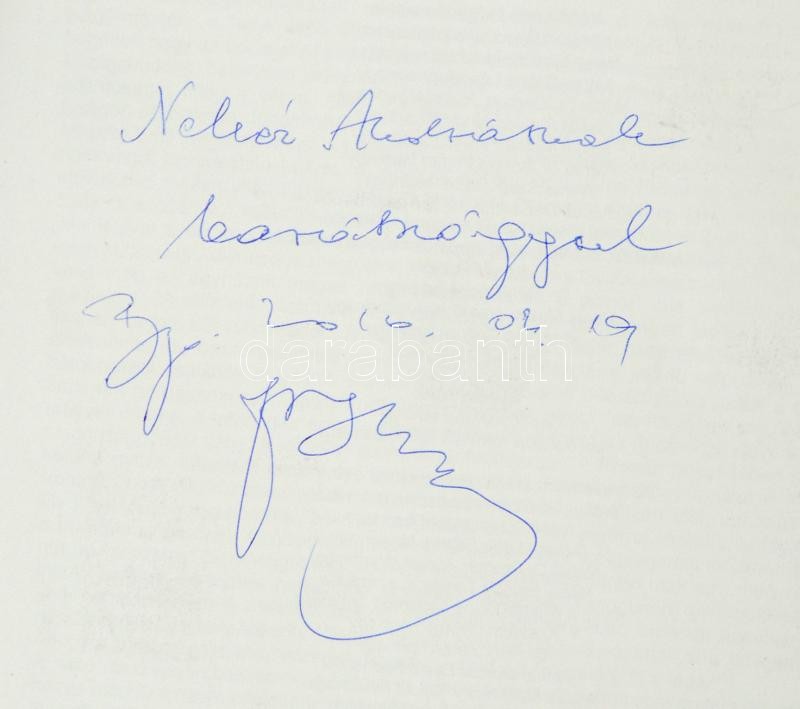 Andrásnak
barátsággal
Bp. 2010. 04. 19
darabanth